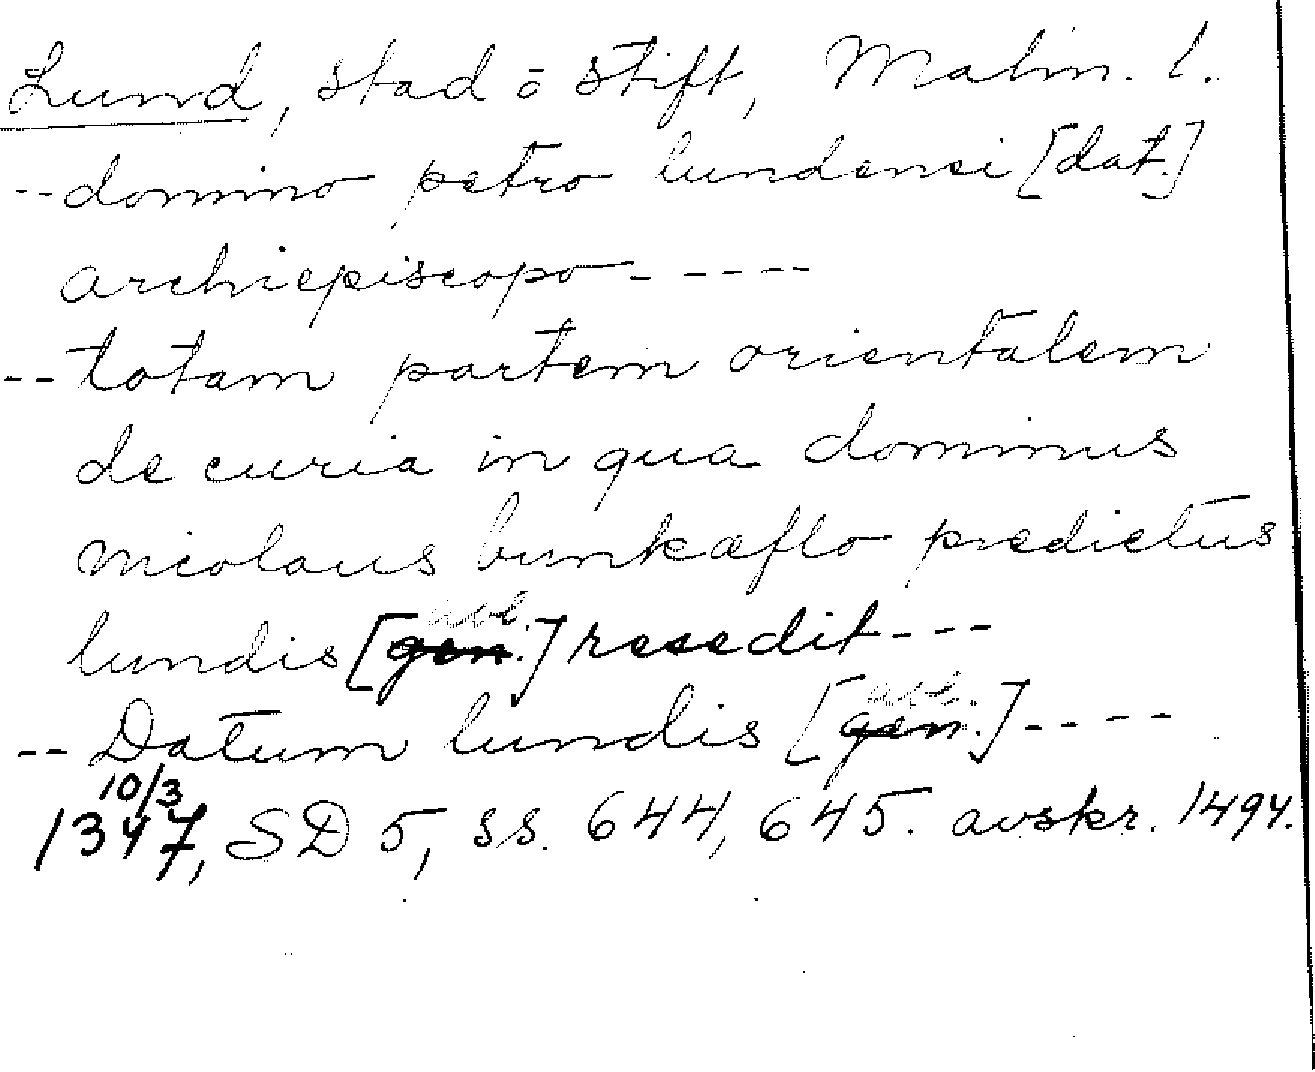 Lund, stad o stift, Malm. l.
--domino petro lundensi [dat.]
archiepiscopo-----
--totam partem orientalem
de curia in qua dominus
nicolaus bunkæflo predictus
lundis [gen. abl.] resedit---
--Datum lundis [gen. abl.]----
10/3
1347, SD 5, ss. 644, 645. avskr. 1494.